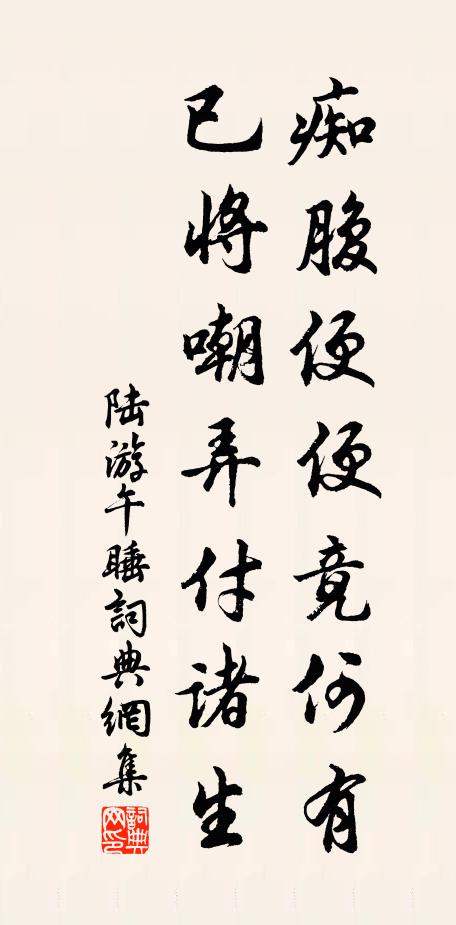 痴腹便便竟何有
已将嘲弄付诸生
陆游午睡詞典網集
詞典网印